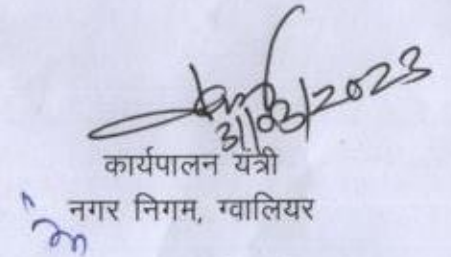 31/03/2023
कार्यपालन यंत्री
नगर निगम, ग्वालियर